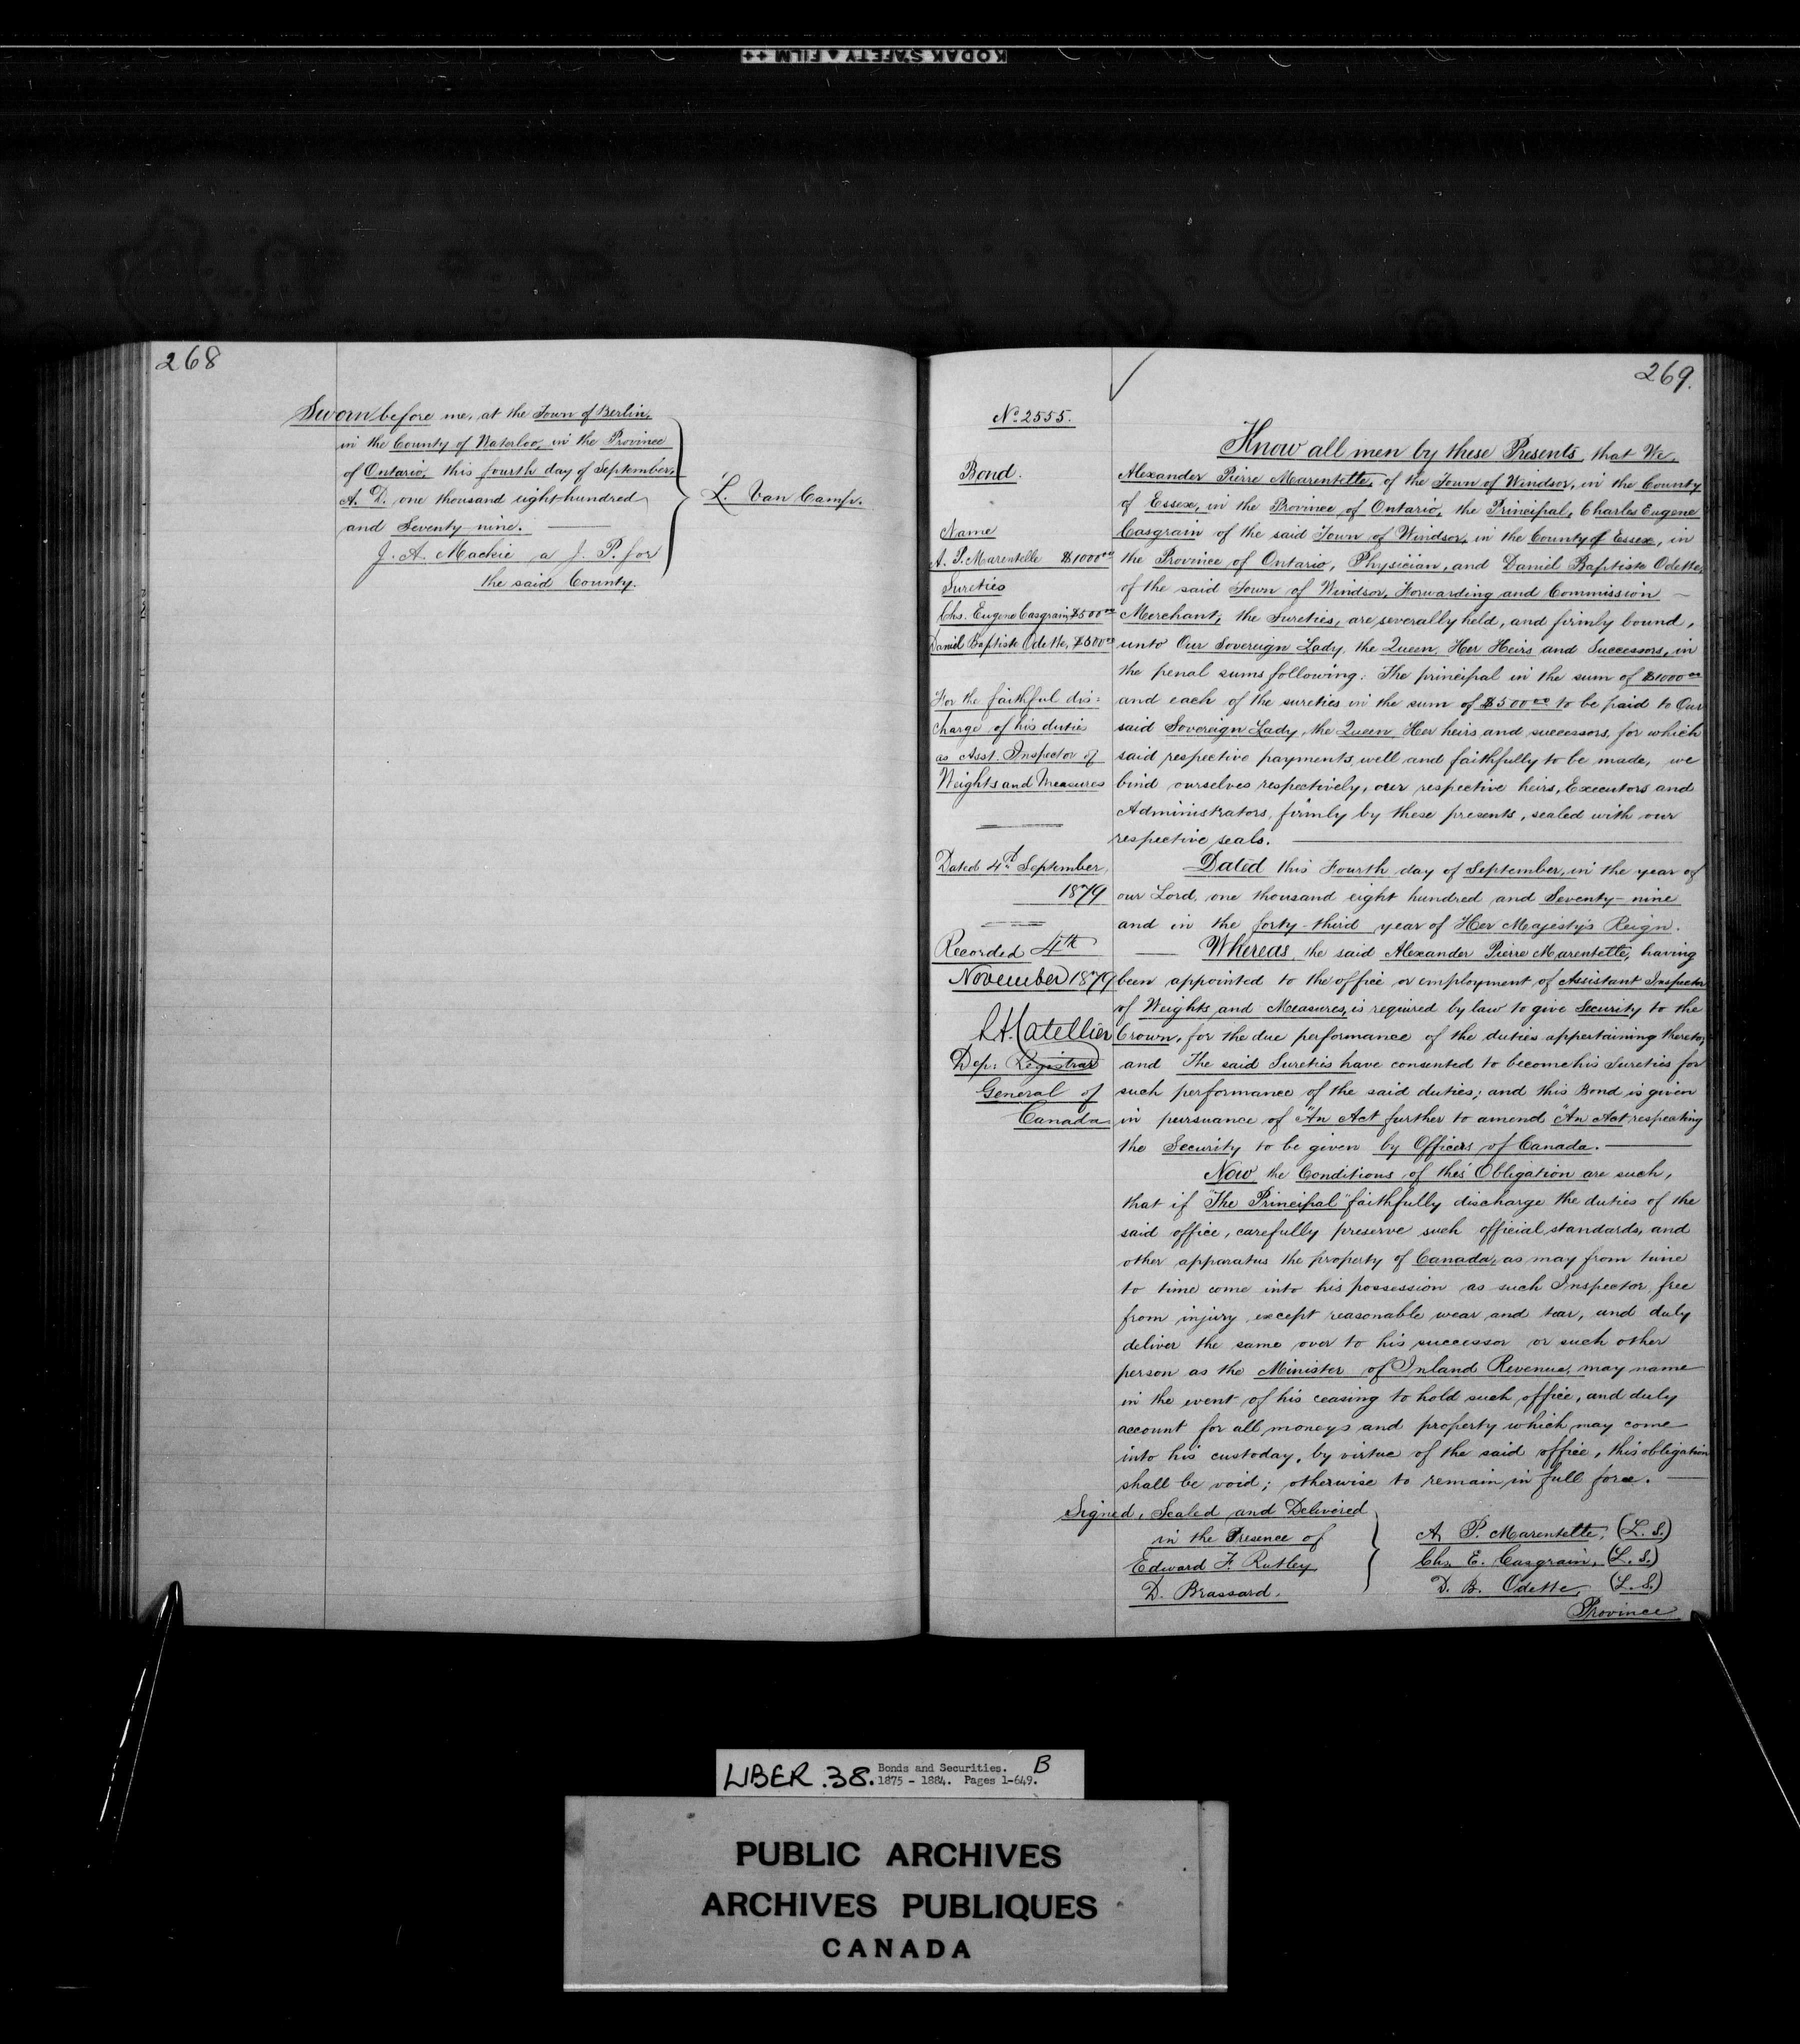 KODAK SAFETY ▲ FILM ++
268
Sworn before me, at the Town of Berlin,
in the County of Waterloo, in the Province
of Ontario, this fourth day of September,
A. D. one thousand eight hundred
and Seventy-nine.
J. A. Mackie a J. P. for
the said County.
L. Van Camp.
269.
No 2555.
Bond.
Name
A. P. Marentette $1000.00
Sureties
Chs. Eugene Casgrain, $500.00
Daniel Baptiste Odette, $500.00
For the faithful dis=
charge of his duties
as Asst. Inspector of
Weights and Measures
Dated 4th September,
1879
Recorded 4th
November 1879
Catellier
Dep: Registrar
General of
Canada
Know all men by these Presents, that We,
Alexander Pierre Marentette, of the Town of Windsor, in the County
of Essex, in the Province of Ontario, the Principal, Charles Eugene
Casgrain of the said Town of Windsor, in the County of Essex, in
the Province of Ontario, Physician, and Daniel Baptiste Odette,
of the said Town of Windsor, Forwarding and Commission
Merchant, the Sureties, are severally held, and firmly bound,
unto Our Sovereign Lady, the Queen, Her Heirs and Successors, in
the penal sums following: The principal in the sum of $1000.00
and each of the sureties in the sum of $500.00 to be paid to Our
said Sovereign Lady, the Queen, Her heirs and successors, for which
said respective payments, well and faithfully to be made, we
bind ourselves respectively, our respective heirs, Executors and
Administrators, firmly by these presents, sealed with our
respective seals.
Dated this Fourth day of September, in the year of
our Lord, one thousand eight hundred and Seventy-nine
and in the forty-third year of Her Majesty's Reign.
Whereas, the said Alexander Pierre Marentette, having
been appointed to the office or employment of Assistant Inspector
of Weights and Measures, is required by law to give Security to the
Crown, for the due performance of the duties appertaining thereto,
and The said Sureties have consented to become his Sureties for
such performance of the said duties; and this Bond is given
in pursuance of "An Act further to amend "An Act respecting
the Security to be given by Officers of Canada.
Now the Conditions of this Obligation are such,
that if "The Principal" faithfully discharge the duties of the
said office, carefully preserve such official standards, and
other apparatus the property of Canada, as may from time
to time come into his possession as such Inspector, free
from injury, except reasonable wear and tear, and duly
deliver the same over to his successor or such other
person as the Minister of Inland Revenue, may name
in the event of his ceasing to hold such office, and duly
account for all moneys and property which may come
into his custoday, by virtue of the said office, this obligation
shall be void; otherwise to remain in full force.
Signed, Sealed and Delivered
in the Presence of
Edward F. Rutley
D. Brassard.
A. P. Marentette, (L. S.)
Chs. E. Casgrain, (L. S.)
D. B. Odette, (L. S.)
Province
LIBER .38. Bonds and Securities. B
1875 - 1884. Pages 1-649.
PUBLIC ARCHIVES
ARCHIVES PUBLIQUES
CANADA